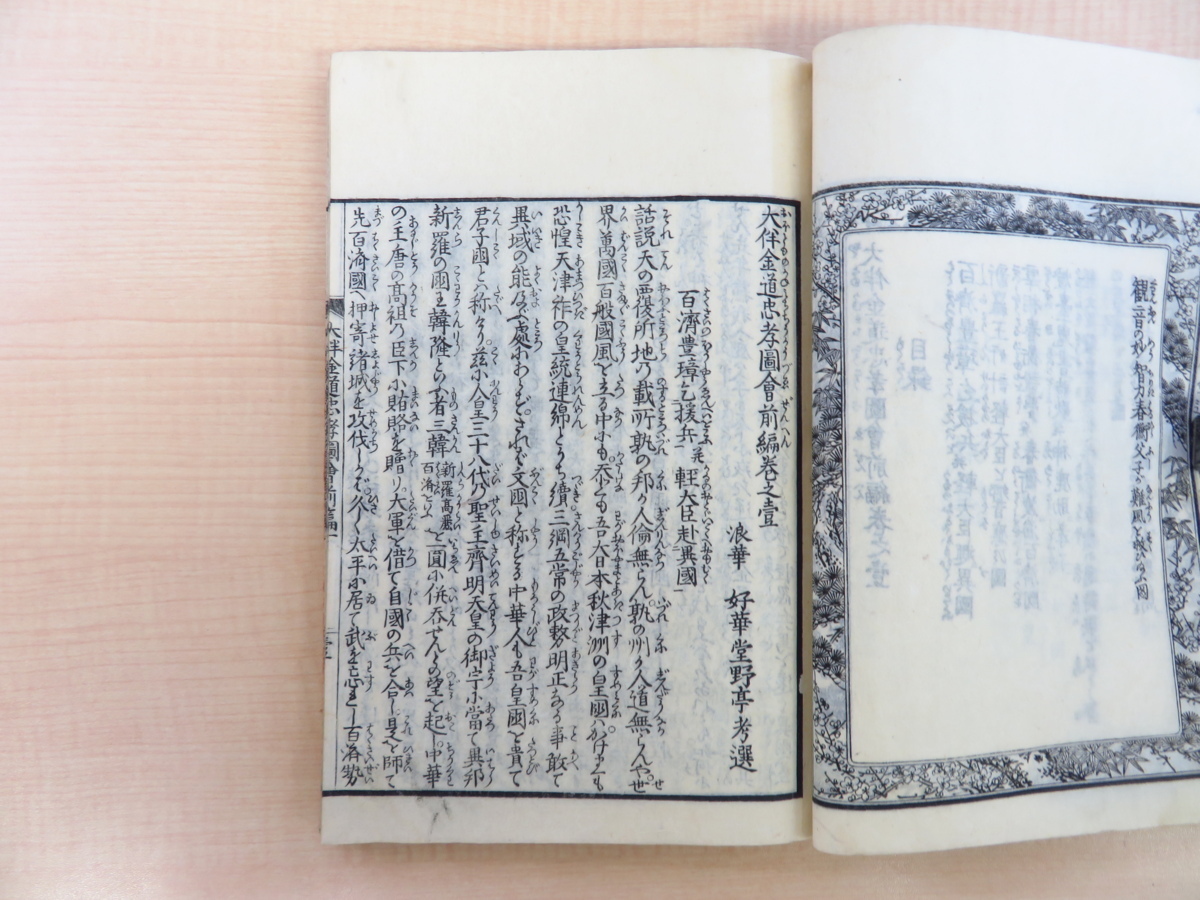 観音の妙智力春衡父子が難風を救ふ図
大伴金道忠孝圖會前編巻之壹
浪華 好華堂野亭考選
百濟豊璋乞援兵 并 軽大臣赴異國
話説天の覆所地の載所孰の邦か人倫無らん。孰の州か人道無らんや。世
界萬國百般國風を立る中にも。忝くも吾大日本秋津洲の皇國はかけまくも
恐惶天津日嗣の皇統連綿とうち續三綱五常の政教明正なる事敢て
異域の能及ぶ處にあらず。されば文國と称する中華人も吾皇國を貴て
君子國と称せり。茲に人皇三十八代の聖主齊明天皇の御宇に當て異邦
新羅の國王韓隆といふ者三韓新羅高麗百済をいふを一圓に併呑せんとの望を起し中華
の王唐の高祖の臣下に賂賂を贈り大軍を借て自國の兵を合し是を師て
先百済國へ押寄諸城を攻伐しかば久しく太平に居て武を忘れし百済勢
大伴金道忠孝圖會前編一